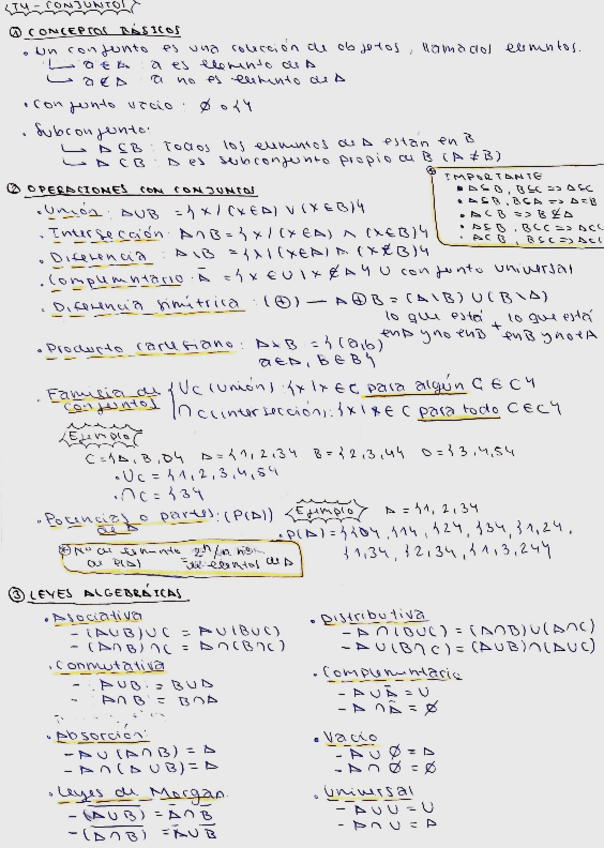 T4 - CONJUNTOS
① CONCEPTOS BÁSICOS
• Un conjunto es una colección de objetos, llamados elementos.
↳ a ∈ A: a es elemento de A
↳ a ∉ A a no es elemento de A
• Conjunto vacío: ∅ o { }
• Subconjunto:
↳ A ⊆ B: Todos los elementos de A están en B
↳ A ⊂ B: A es subconjunto propio de B (A ≠ B)
IMPORTANTE
• A⊆B, B⊆C => A⊆C
• A⊆B, B⊆A => A=B
• A⊂B => B⊈A
• A⊆B, B⊂C => A⊂C
• A⊂B, B⊆C => A⊂C
② OPERACIONES CON CONJUNTOS
• Unión: A∪B = {x / (x∈A) ∨ (x∈B)}
• Intersección: A∩B = {x / (x∈A) ∧ (x∈B)}
• Diferencia: A\B = {x | (x∈A) ∧ (x∉B)}
• Complementario: Ā = {x∈U | x∉A} U conjunto universal
• Diferencia simétrica: (⊕) — A⊕B = (A\B) ∪ (B\A)
lo que está en A y no en B + lo que está en B y no en A
• Producto cartesiano: A×B = {(a,b)
a∈A, b∈B}
• Familia de conjuntos
∪C (unión): {x | x∈C para algún C∈C}
∩C (intersección): {x | x∈C para todo C∈C}
Ejemplo
C={A, B, D} A={1, 2, 3} B={2, 3, 4} D={3, 4, 5}
• ∪C = {1, 2, 3, 4, 5}
• ∩C = {3}
• Potencias o partes: (P(A)) de A
Ejemplo A={1, 2, 3}
• P(A)={{∅}, {1}, {2}, {3}, {1, 2},
{1, 3}, {2, 3}, {1, 3, 2}}
Nº de elementos de P(A) = 2ⁿ / n
elementos de A
③ LEYES ALGEBRAICAS
• Asociativa
- (A∪B)∪C = A∪(B∪C)
- (A∩B)∩C = A∩(B∩C)
• Conmutativa
- A∪B = B∪A
- A∩B = B∩A
• Absorción:
- A∪(A∩B) = A
- A∩(A∪B) = A
• Leyes de Morgan
- (A̅∪̅B̅) = A̅∩B̅
- (A̅∩̅B̅) = A̅∪B̅
• Distributiva
- A∩(B∪C) = (A∩B)∪(A∩C)
- A∪(B∩C) = (A∪B)∩(A∪C)
• Complementario
- A∪Ā = U
- A∩Ā = ∅
• Vacío
- A∪∅ = A
- A∩∅ = ∅
• Universal
- A∪U = U
- A∩U = A